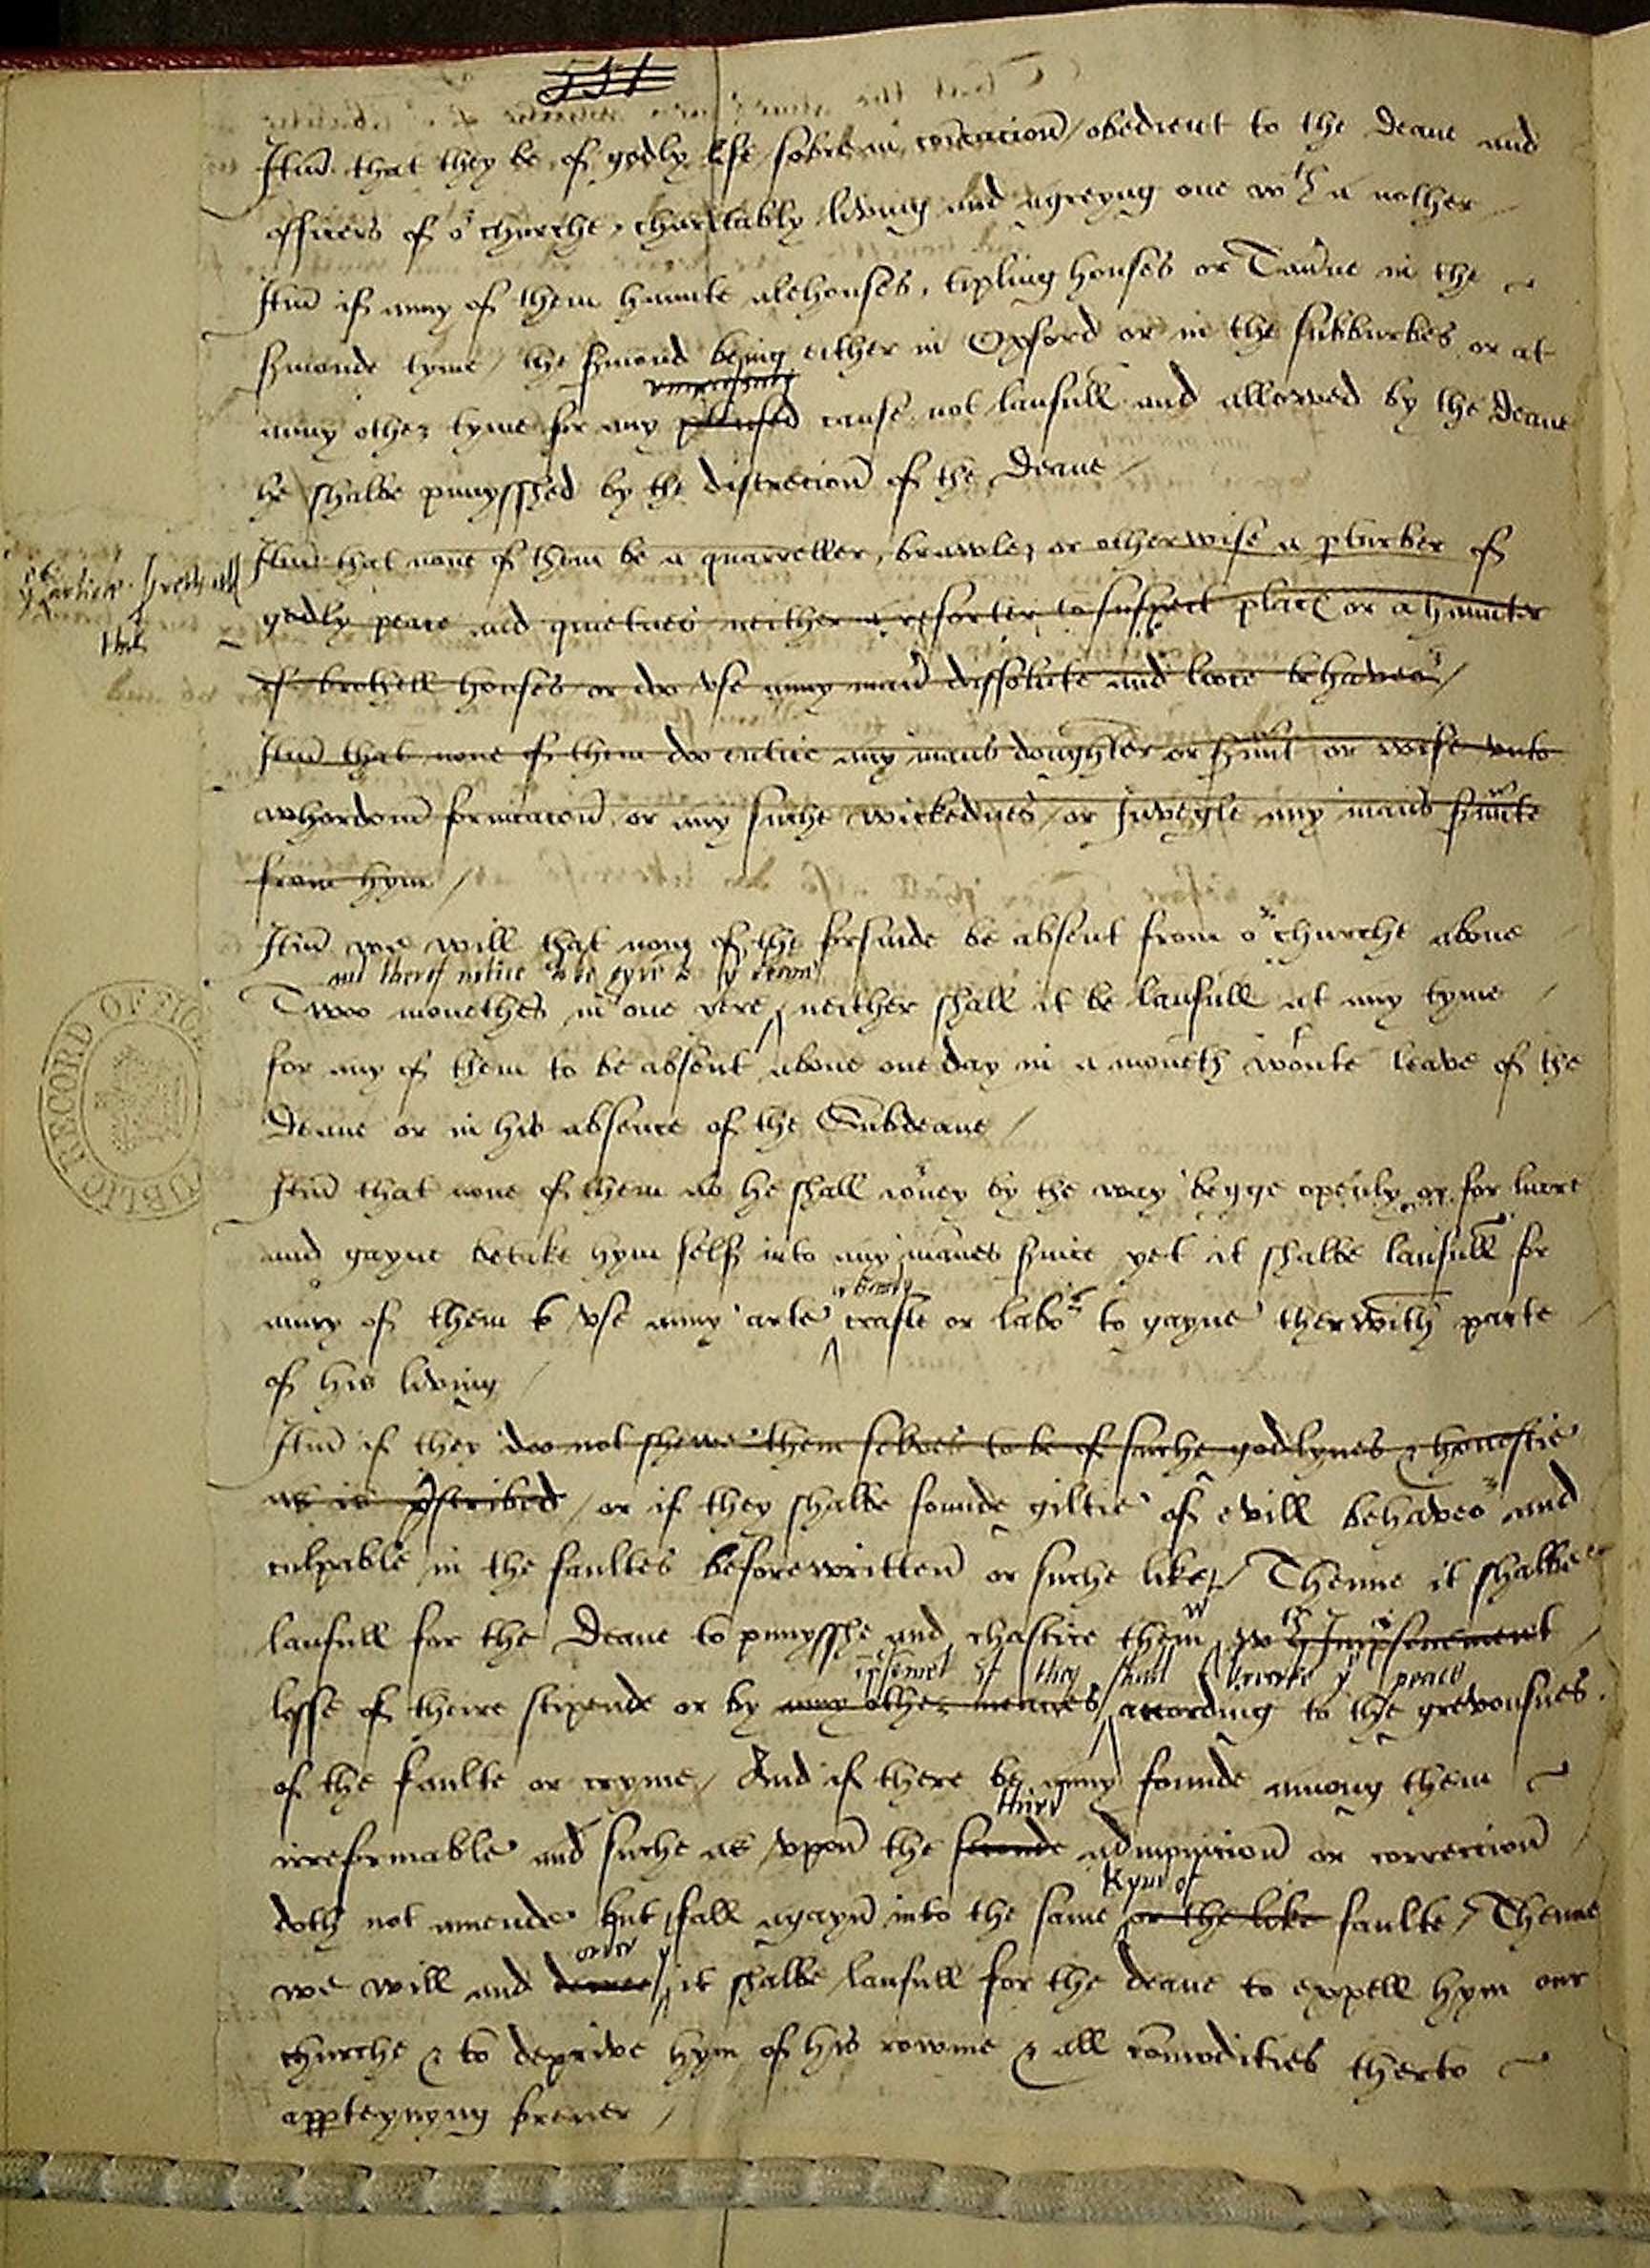 Itm that they be of godly life sobre in convsacion / obedient to the deane and
officers of or churche, charitably living and agreyng one wth a nother
Itm if anny of them haunte alehouses, tipling houses or Tavne in the
smonde tyme / the smond being either in Oxford or in the subburbes or at
anny other tyme for any cause not laufull and allowed by the deane
he shalbe punysshed by the discrecion of the Deane /
Itm that none of them be a quarreller, brawler or otherwise a pturber of
godly peace and quietnes neither a resorter to suspect place or a haunter
of brothell houses or do vse anny manr dissolute and lwre behaveor /
Itm that none of them do entice any mans doughter or svnt or wife vnto
whordom fornicacon or any suche wickednes / or Inveygle any mans svnte
from hym /
Itm we will that none of the forsaide be absent from or churche above
and therof notice to be gyve to ye deane
Two monethes in one yere, neither shall it be laufull at any tyme
for any of them to be absent above one day in a moneth wtoute leave of the
Deane or in his absence of the Subdeane /
Itm that none of them as he shall iorney by the way begge openly or for lucre
and gayne betake hym self into any mannes svice yet it shalbe laufull for
anny of them to vse anny arte crafte or labor to gayne therwith parte
of his living /
Itm if they do not shewe them selves to be of suche godlynes & honestie
as is pscribed / or if they shalbe founde giltie of evill behaveor and
culpable in the faultes beforewritten or suche like / Thenne it shalbe
laufull for the Deane to punysshe and chastice them wth Imprisonement
ipsomet if they shall breake ye peace
losse of theire stipende or by anny other meanes according to the grevousnes
of the faulte or cryme / And if there be anny founde among them
third
irreformable and suche as vpon the seconde admonicion or correccion
kynd of
doth not amende but fall agayn into the same or the like faulte / Thenne
order yt
we will and decree it shalbe laufull for the deane to expell hym our
churche & to deprive hym of his rowme & all comodities therto
appteynyng forever /
PUBLIC RECORD OFFICE